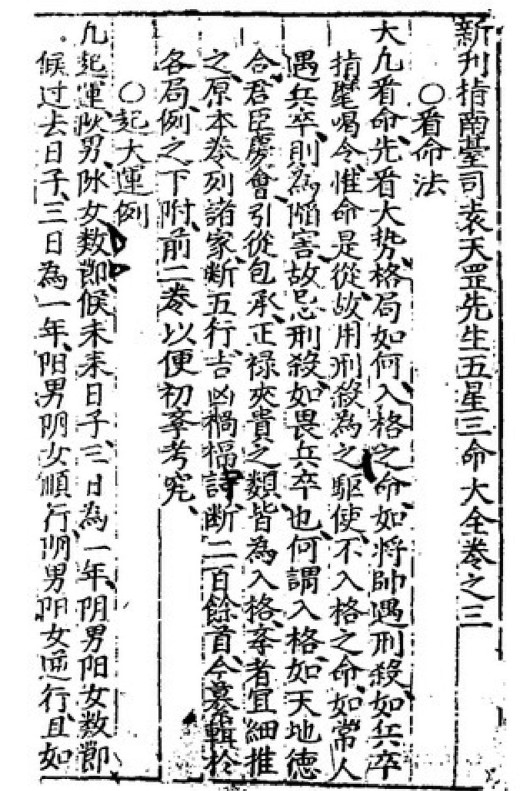 新刊指南臺司袁天罡先生五星三命大全卷之三
○看命法
大凢看命先看大势格局如何入格之命如将帥遇刑殺如兵卒
指麾喝令惟命是從故用刑殺為之駆使不入格之命如常人
遇兵卒則為陷害故忌刑殺如畏兵卒也何謂入格如天地德
合君臣慶會引從包承正禄夾貴之類皆為入格斈者宜細推
之原本卷列諸家断五行吉凶禍福詩断二百餘首今纂輯於
各局例之下附前二卷以便初斈考究
○起大運例
凢起運阳男阴女数即候未来日子三日為一年阴男阳女数即
候过去日子三日為一年阳男阴女順行阴男阳女逆行且如